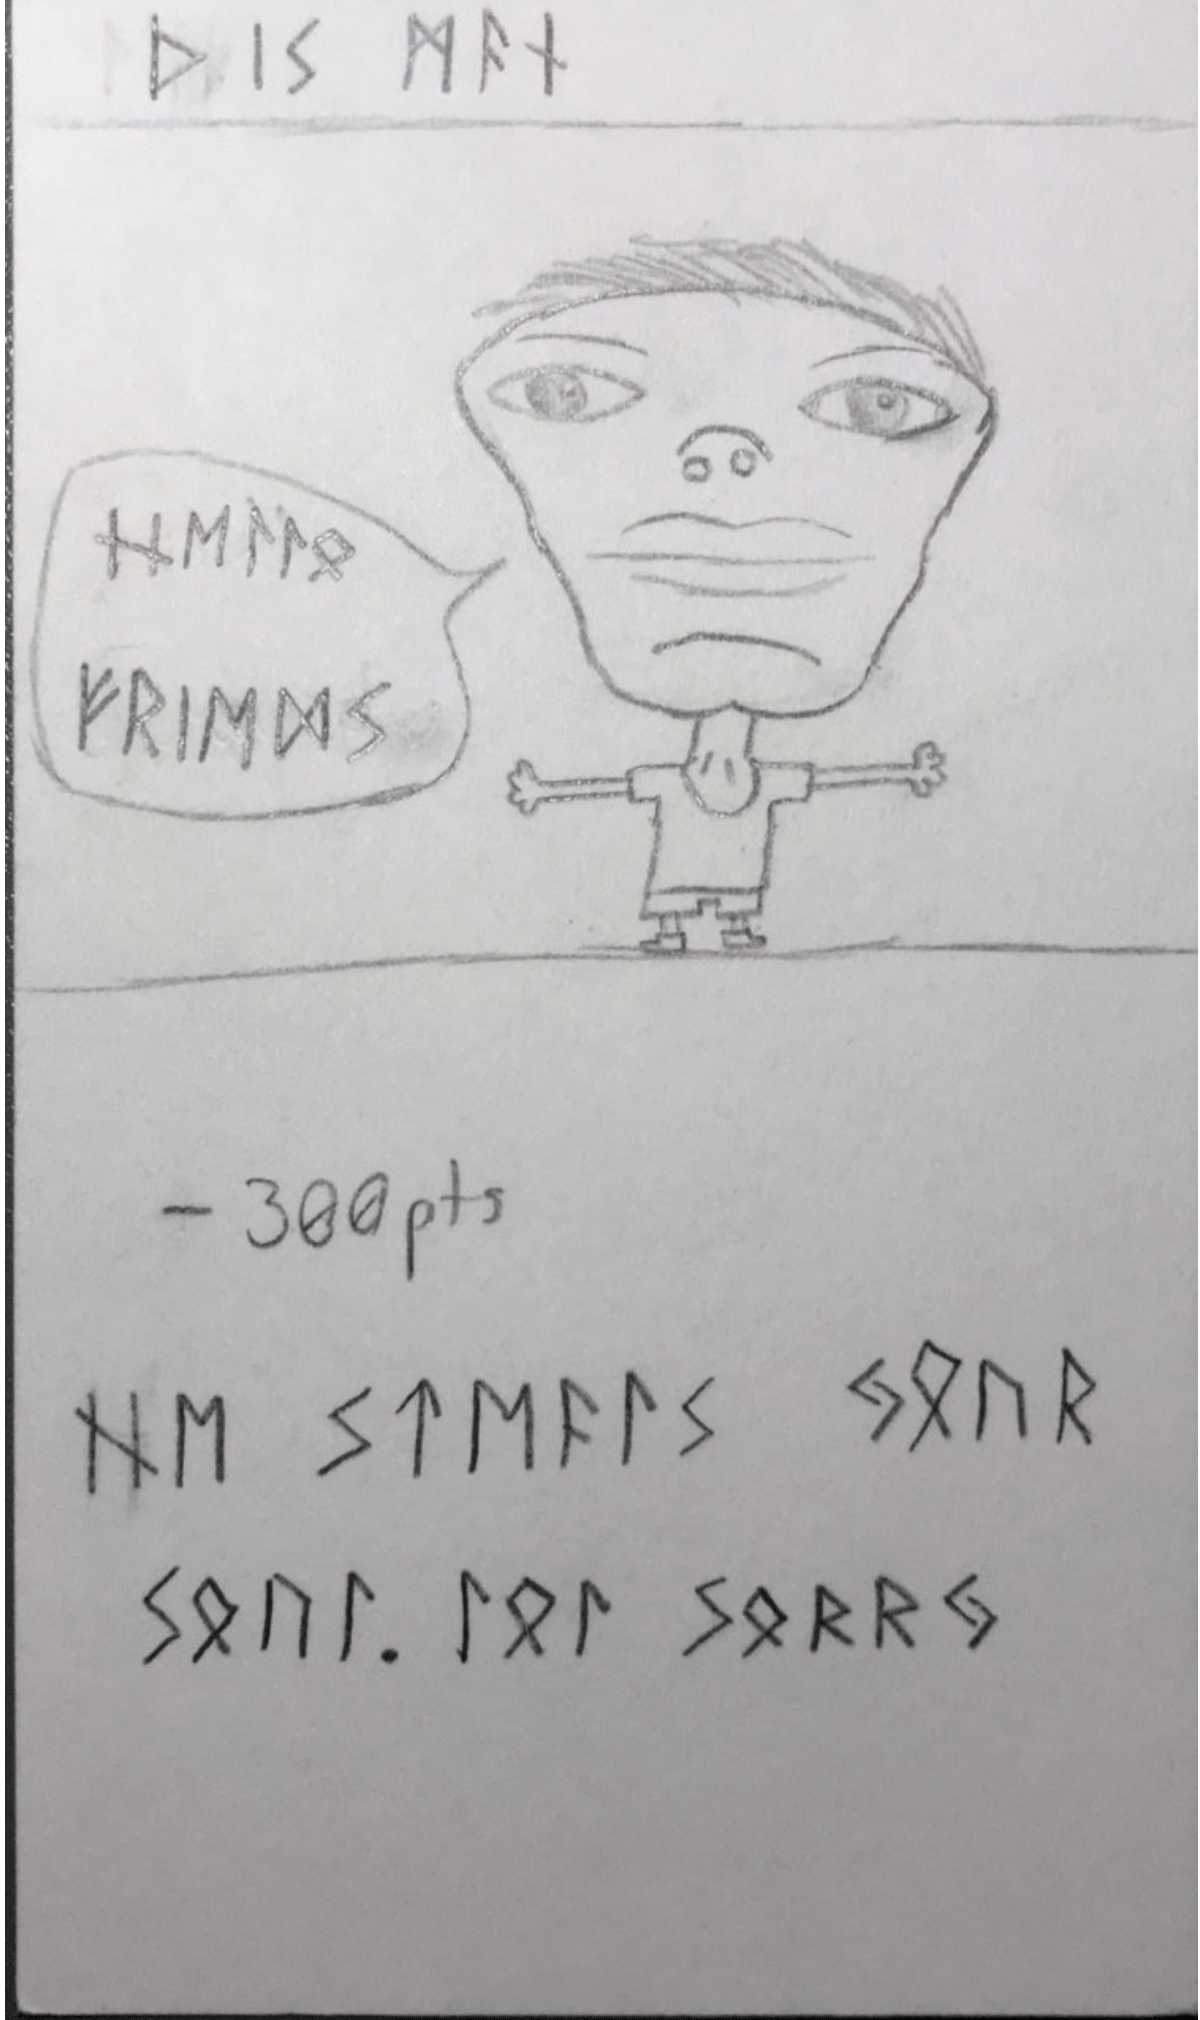 ᚦᛁᛊ ᛗᚨᚾ
ᚺᛖᛚᛚᛟ
ᚠᚱᛁᛖᛞᛊ
- 300pts
ᚺᛖ ᛊᛏᛖᚨᛚᛊ ᛃᛟᚢᚱ
ᛊᛟᚢᛚ. ᛚᛟᛚ ᛊᛟᚱᚱᛃ